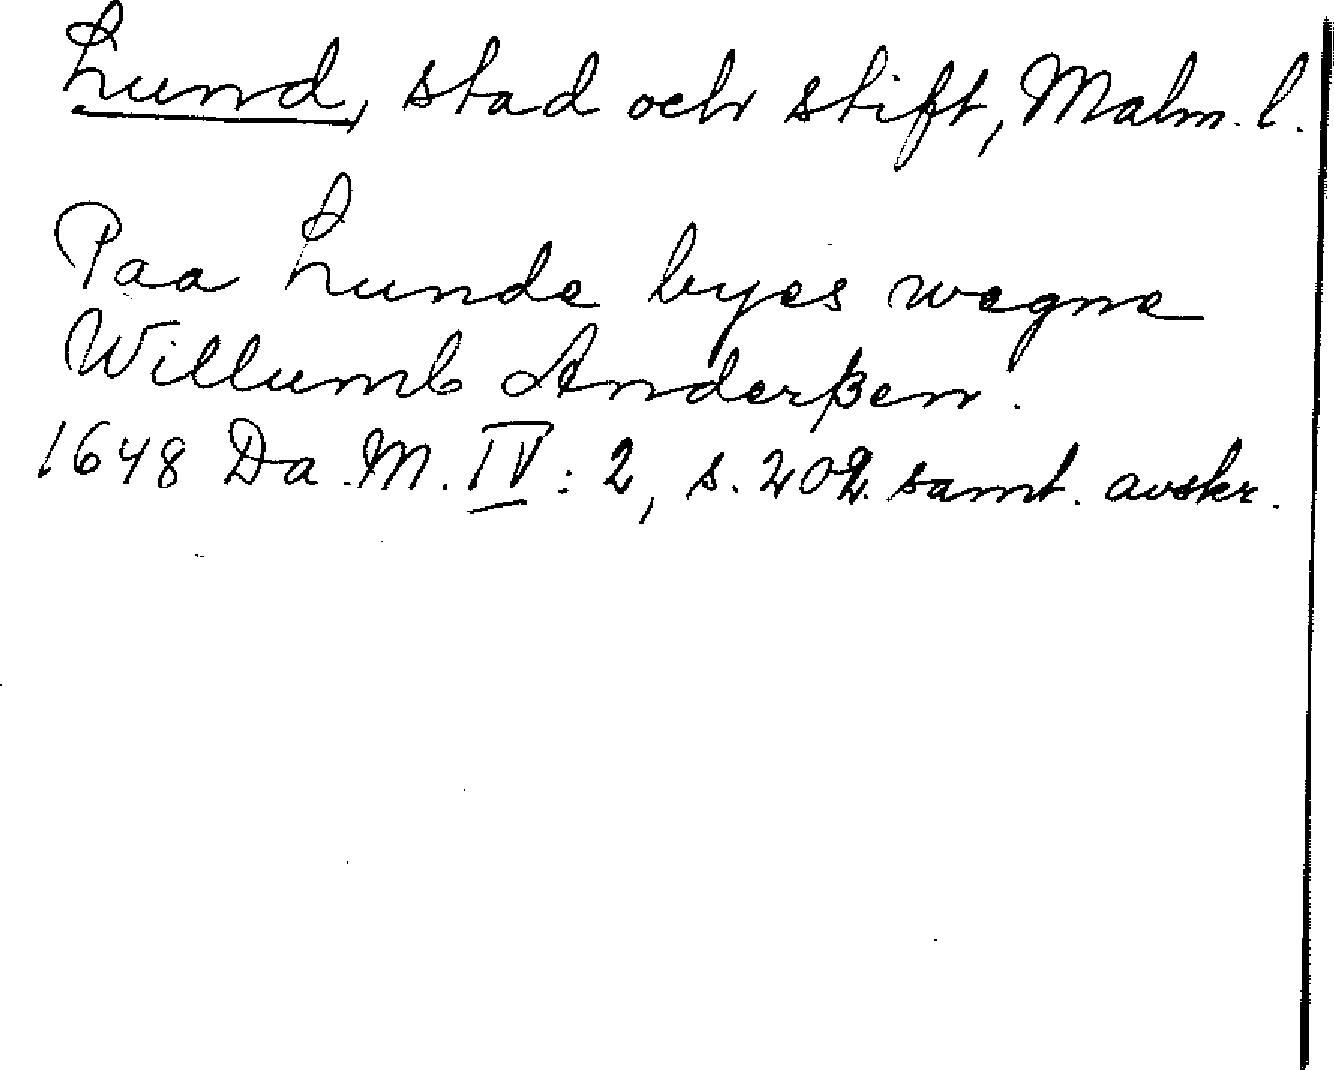 Lund, stad och stift, Malm. l.
Paa Lunde byes wegne
Willumb Anderßen.
1648 Da. M. IV: 2, s. 202 samt. avskr.